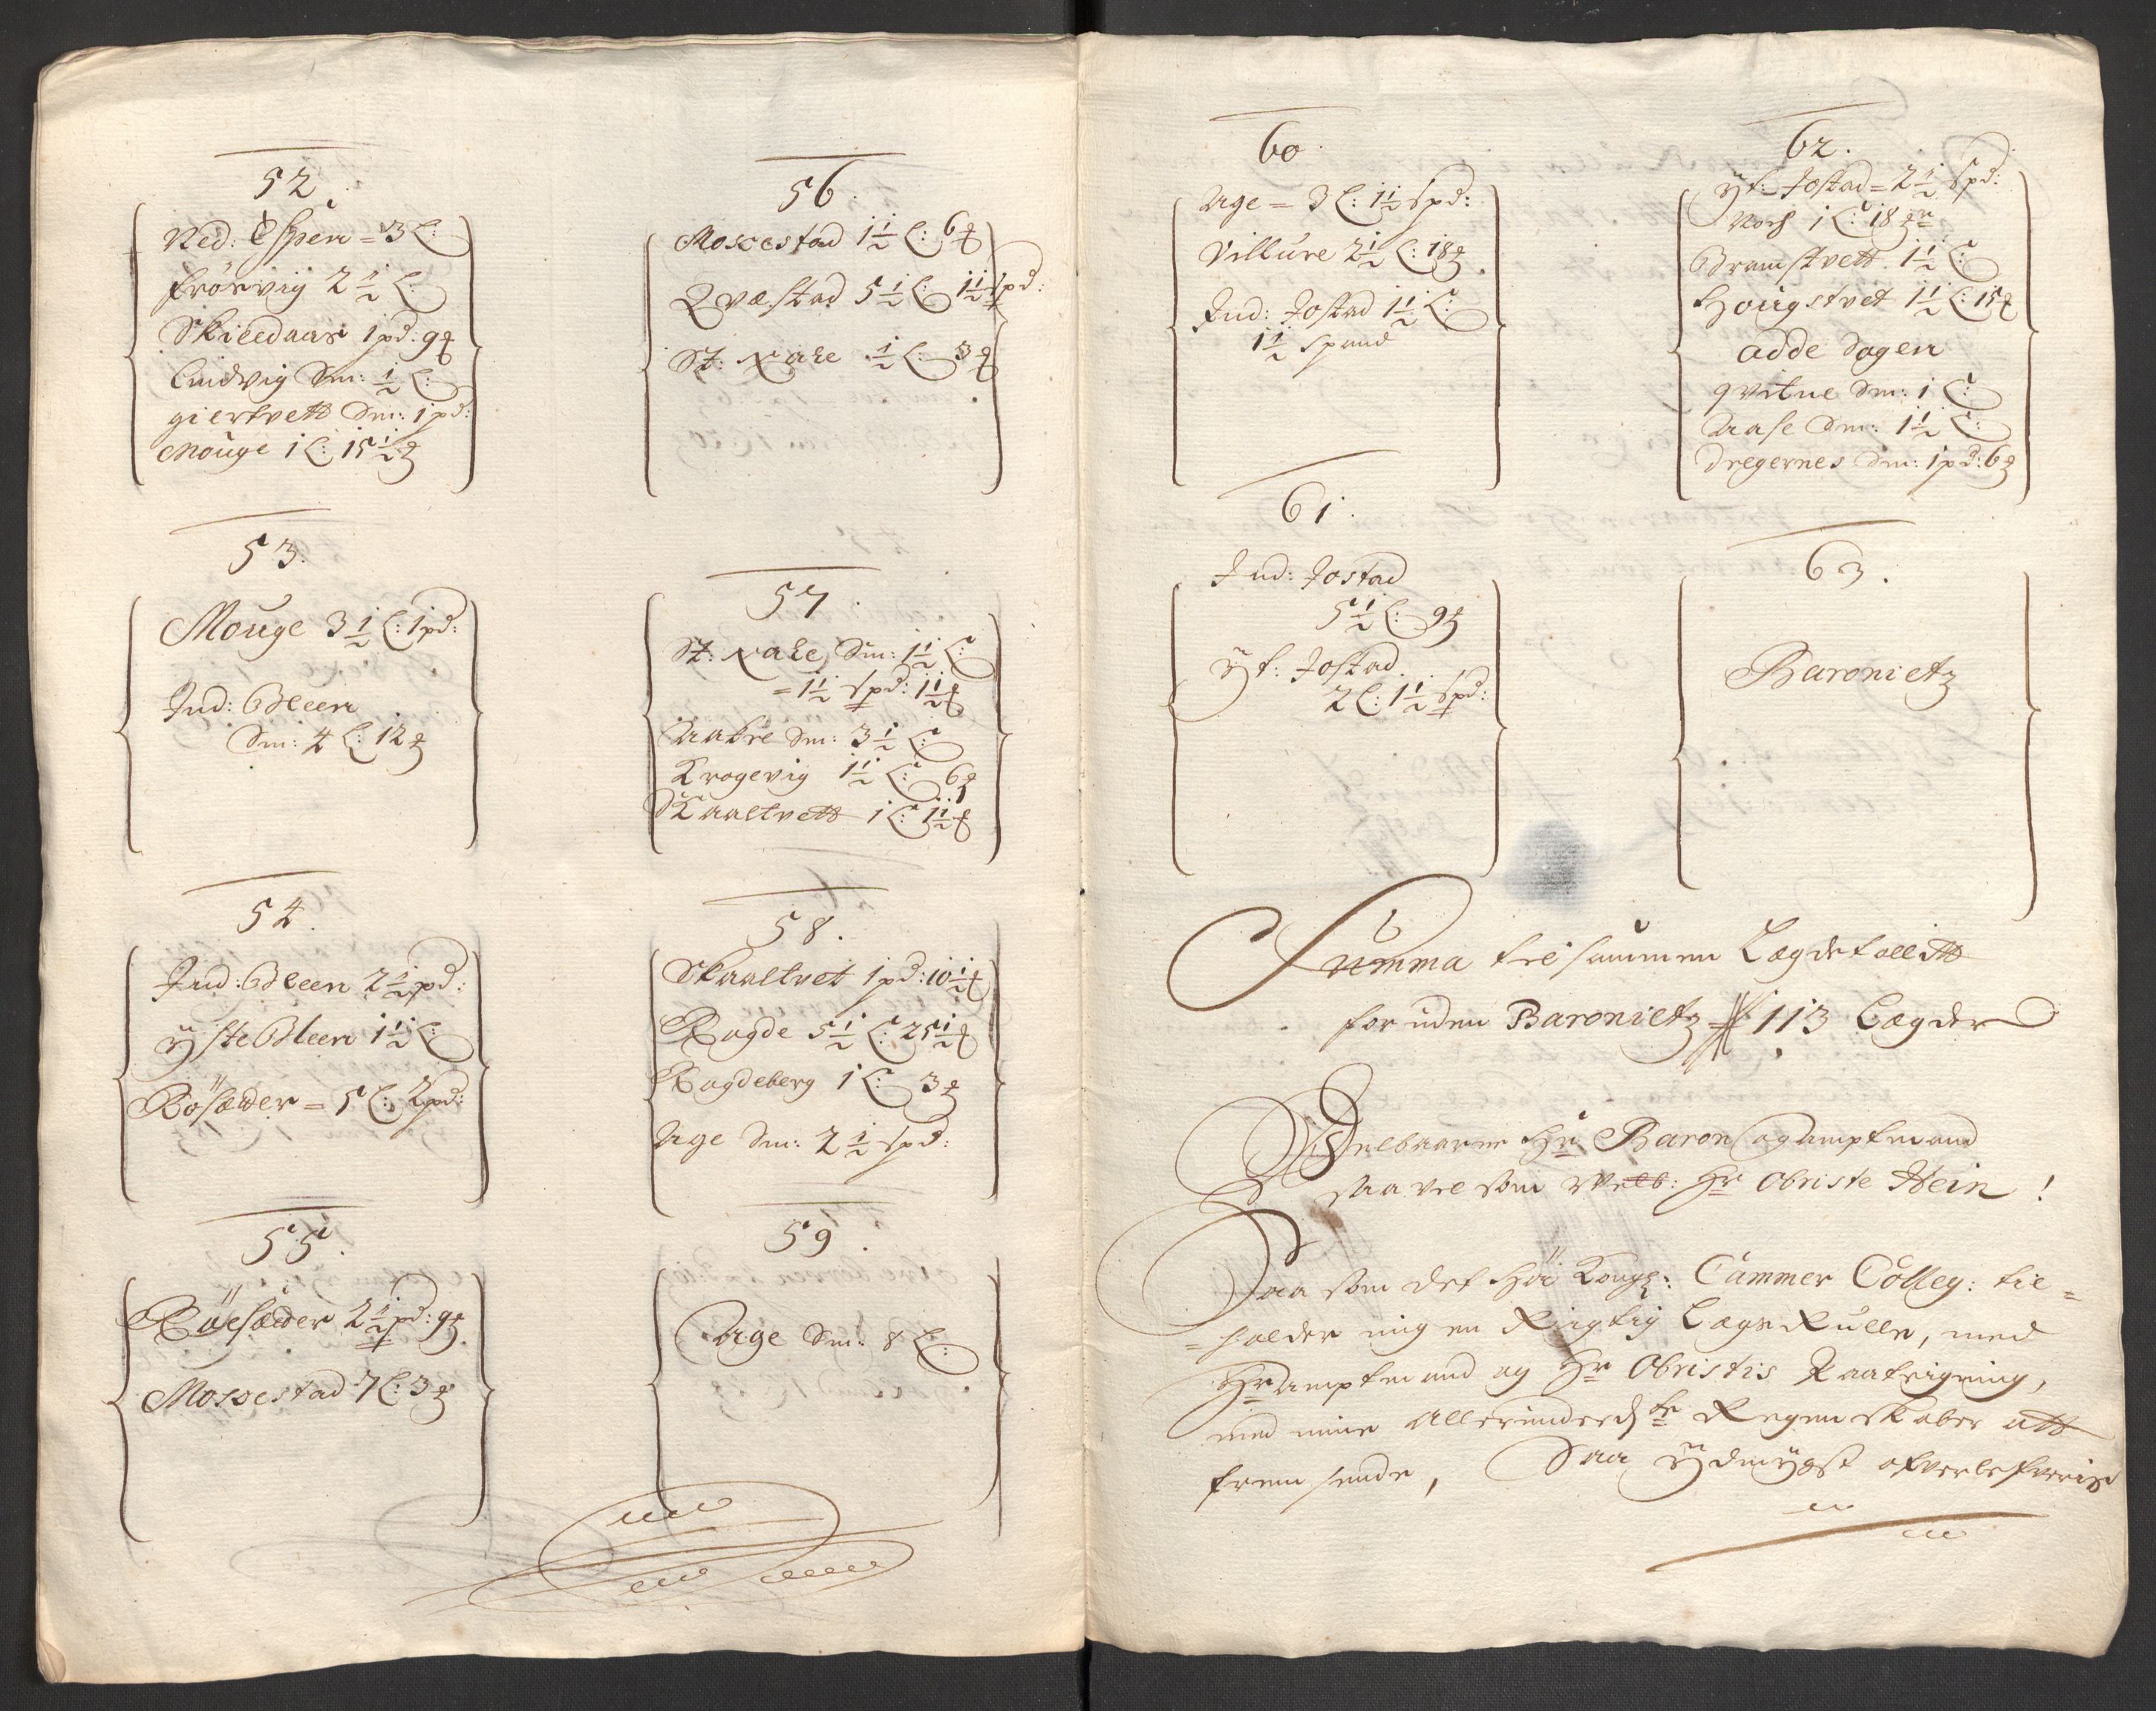 52.
Ned: Espen = 3 L:
frörvig 2 1/2 L:
Skieldaas 1 pd: 9 ℔
Lindvig Sm: 1/2 L:
giertvett Sm: 1 pd:
Mouge 1 L: 15 1/2 ℔
53.
Mouge 3 1/2 L: 1 pd:
Ind: Bleen
Sm: 4 L: 12 ℔
54.
Ind: Bleen 2 1/2 pd:
ÿste Bleen 1 1/2 L:
Rösælder = 5 L: 2 pd:
55.
Röesælder 2 1/2 pd: 9 ℔
Mossestad 7 L: 3 ℔
56.
Mossestad 1 1/2 L: 6 ℔
Qvæstad 5 1/2 L: 1 1/2 spd:
St: 1/2 L: 3 ℔
57.
St: Sm: 1 1/2 L:
= 1 1/2 spd: 1 1/2 ℔
Aakre Sm: 3 1/2 L:
Krogevig 1 1/2 L: 6 ℔
Skaaltvett 1 L: 1 1/2 ℔
58.
Skaaltvet 1 pd: 10 1/2 ℔
Rogde 5 1/2 L: 25 1/2 ℔
Rogdeberg 1 L: 3 ℔
Age Sm: 2 1/2 spd:
59.
Age Sm: 8 L:
60.
Age = 3 L: 1 1/2 spd:
Villure 2 1/2 L: 18 ℔.
Ind: Jostad 1 1/2 L:
1 1/2 spand
61.
Ind: Jostad
5 1/2 L: 9 ℔
ÿt: Jostad.
2 L: 1 1/2 spd:
62.
ÿt: Jostad = 2 1/2 spd:
Noch 1 L: 18
Bramstvett 1 1/2 L:
Hougstvet 1 1/2 L: 15 ℔
Odde Sogen
qvitne Sm: 1 L:
Aase Sm: 1 1/2 L:
Dregernes Sm: 1 pd: 6 ℔
63.
Baronietz
Summa tilsammen Lægdetallitt
foruden Baronietz 113 Lægder
Velbaarne Hr Baron og amptmand
saa vel som Welb: Hr Obriste Hein!
Saa som det höi Kongl: Cammer Colleg: til=
=holder mig en Rigtig Lægs Rulle, med
Hr amptmand og Hr Obristis Paategning,
med mine Allerunderd ste Regenskaber att
fremsende, Saa ÿdmygst